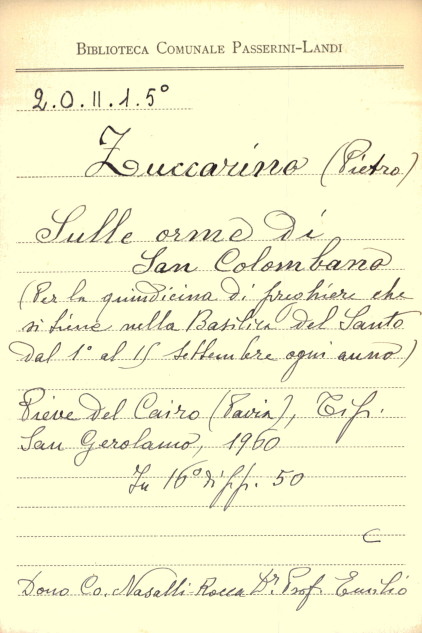 BIBLIOTECA COMUNALE PASSERINI-LANDI
2.0.II.1.5°
Zuccarino (Pietro)
Sulle orme di
San Colombano
(Per la quindicina di preghiere che
si tiene nella Basilica del Santo
dal 1° al 15 Settembre ogni anno)
Pieve del Cairo (Pavia), Tip.
San Gerolamo, 1960
In 16° di pp. 50
C
Dono Co. Nasalli-Rocca Dr. Prof. Emilio